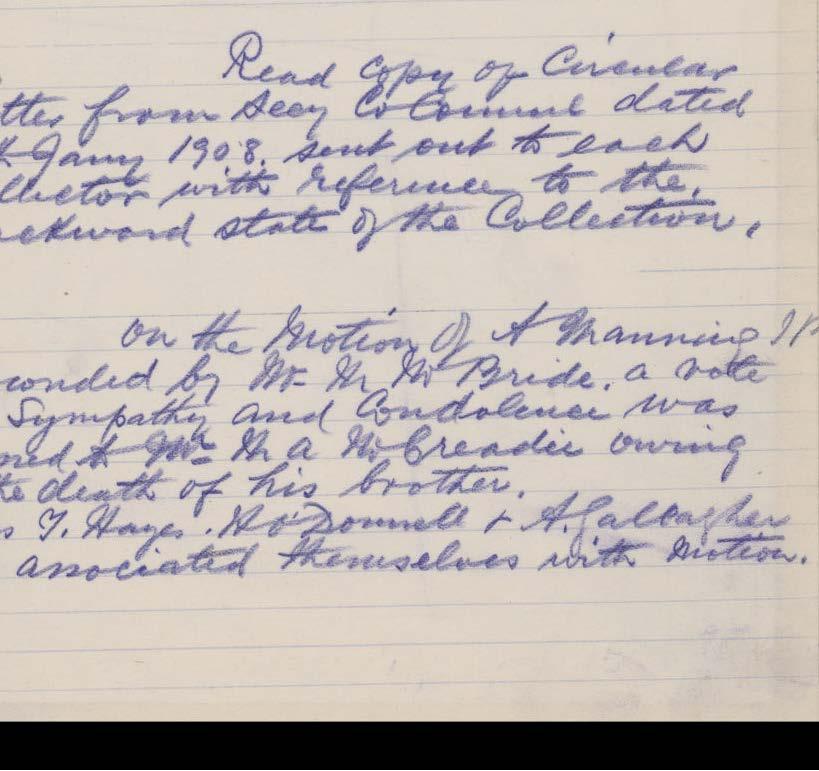 Read copy of Circular
tter from Secy Co Council dated
th Jany 1908. sent out to each
llector with reference to the
ackward state of the Collection.
On the Motion of A Manning JP
conded by Mr M McBride. a vote
Sympathy and Condolence was
ned to Mr M A McCreadie owing
he death of his brother.
s T. Hayes. H O'Donnell + A. Gallagher
associated themselves with Motion.